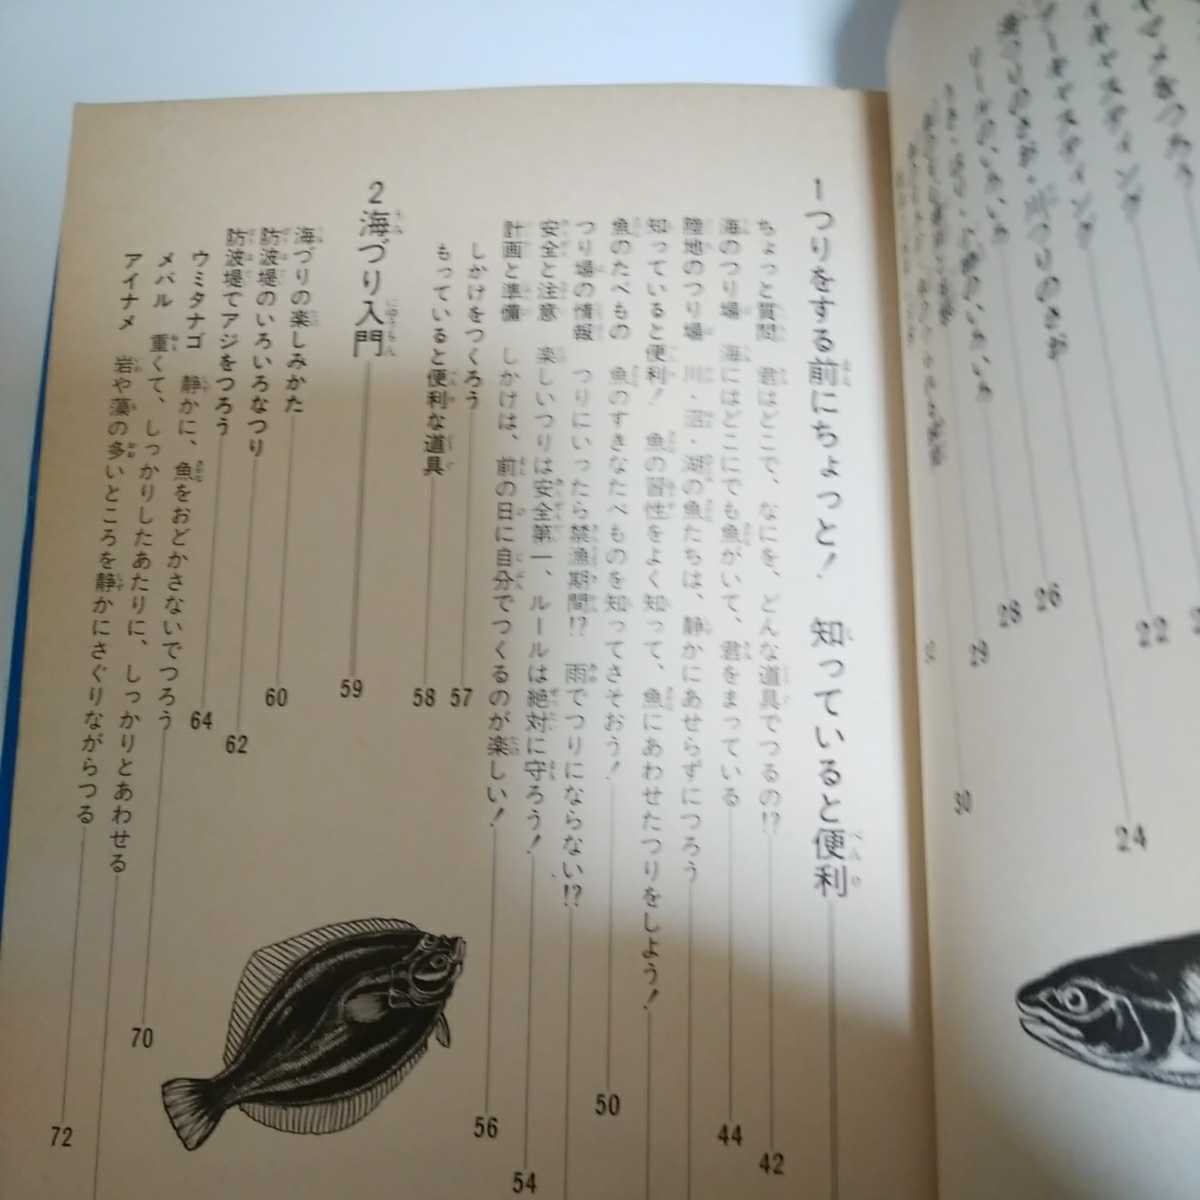 1 つりをする前にちょっと！ 知っていると便利
ちょっと質問 君はどこで、なにを、どんな道具でつるの!? 42
海のつり場 海にはどこにでも魚がいて、君をまっている 44
陸地のつり場 川・沼・湖の魚たちは、静かにあせらずにつろう
知っていると便利！ 魚の習性をよく知って、魚にあわせたつりをしよう！
魚のたべもの 魚のすきなたべものを知ってさそおう！ 50
つり場の情報 つりにいったら禁漁期間!? 雨でつりにならない!?
安全と注意 楽しいつりは安全第一、ルールは絶対に守ろう！ 54
計画と準備 しかけは、前の日に自分でつくるのが楽しい！ 56
しかけをつくろう 57
もっていると便利な道具 58
2 海づり入門 59
海づりの楽しみかた 60
防波堤のいろいろなつり 62
防波堤でアジをつろう 64
ウミタナゴ 静かに、魚をおどかさないでつろう 70
メバル 重くて、しっかりしたあたりに、しっかりとあわせる
アイナメ 岩や藻の多いところを静かにさぐりながらつる 72
22
24
26
28
29
30